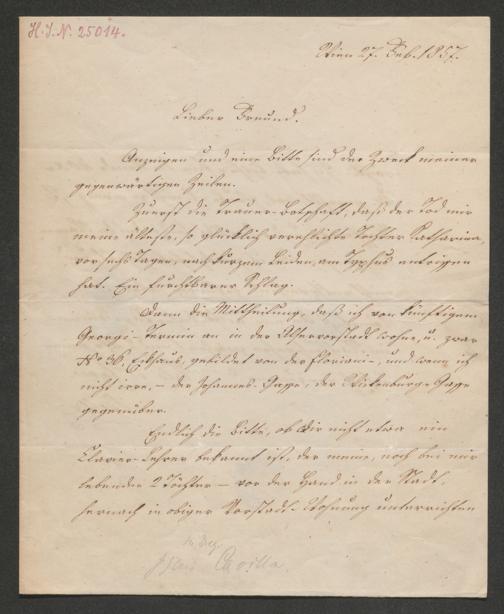 H.I.N. 25014.
Wien 27. Feb. 1857.
Lieber Freund.
Anzeigen und eine Bitte sind der Zweck meiner
gegenwärtigen Zeilen.
Zuerst die Trauer-Botschaft, daß der Tod mir
meine älteste, so glücklich verehlichte Tochter Katharina,
vor sechs Tagen, nach kurzem Leiden, am Typhus entrißen
hat. Ein furchtbarer Schlag.
Dann die Mittheilung, daß ich vom künftigen
Georgi-Termin an in der Alservorstadt wohne, u. zwar
No 36, Eckhaus, gebildet von der Floriani-, und wenn ich
nicht irre, – der Johannes-Gasse, der Wickenburg-Gasse
gegenüber.
Endlich die Bitte, ob Dir nicht etwa ein
Clavier-Lehrer bekannt ist, der meine, noch bei mir
lebenden 2 Töchter – vor der Hand in der Stadt,
hernach in obiger Vorstadt-Wohnung unterrichten